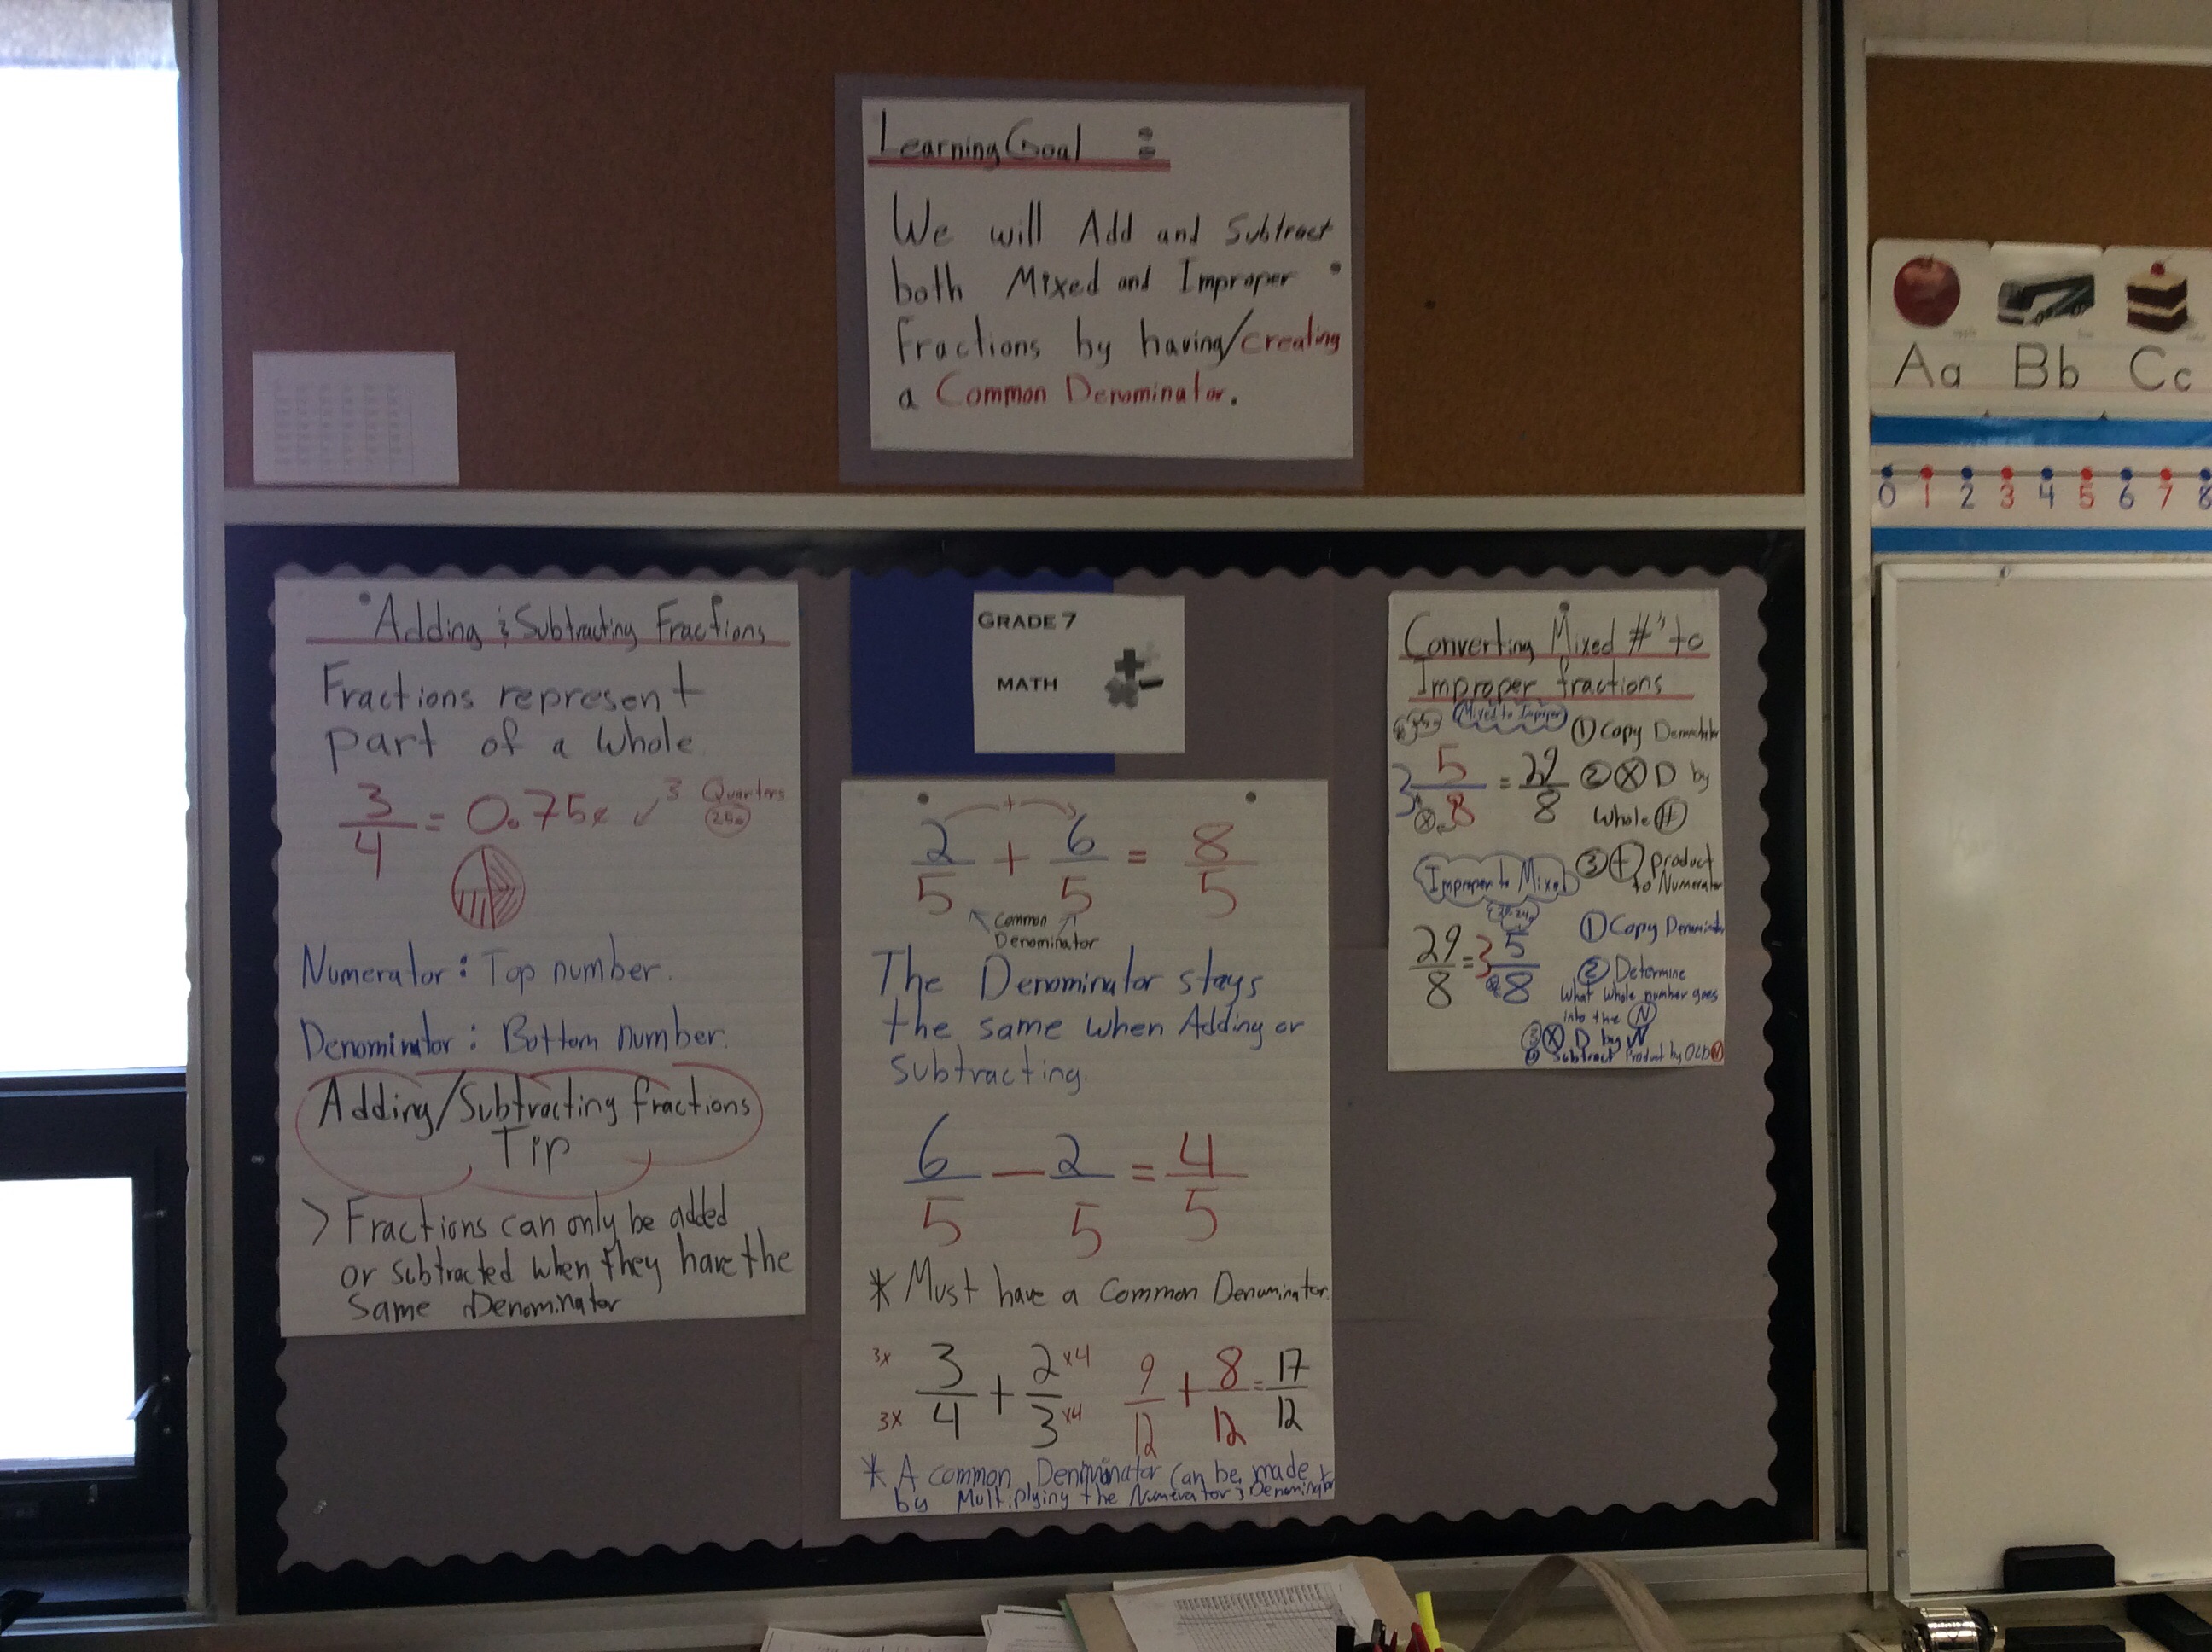 Learning Goal :
We will Add and Subtract
both Mixed and Improper
fractions by having/creating
a Common Denominator.
Aa Bb Cc
0 1 2 3 4 5 6 7 8
Adding & Subtracting Fractions
Fractions represent
part of a Whole
3/4 = 0.75¢ ↙ 3 Quarters
25¢
Numerator: Top number.
Denominator: Bottom number.
Adding/Subtracting fractions
Tip
> Fractions can only be added
or subtracted when they have the
same Denominator
GRADE 7
MATH
+
2/5 + 6/5 = 8/5
Common
Denominator
The Denominator stays
the same when Adding or
subtracting.
6/5 — 2/5 = 4/5
* Must have a Common Denominator.
3x 3/4 + 2/3 x4 9/12 + 8/12 = 17/12
3x x4
* A common Denominator can be made
by Multiplying the Numerator & Denominator
Converting Mixed #'s to
Improper fractions
Mixed to Improper
① Copy Denominator
3 5/8 = 29/8
② ⓧ D by
Whole #
③ + product
to Numerator
Improper to Mixed
29/8 = 3 5/8
① Copy Denominator
② Determine
What whole number goes
into the N
③ ⓧ D by W
④ Subtract Product by OLD N